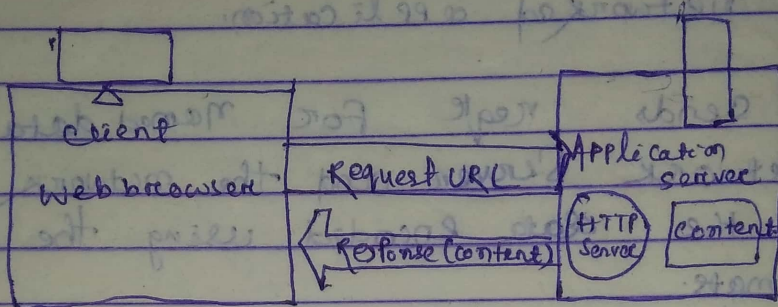 Client
Web browser
Request URL
Response (content)
Application
server
HTTP
Server
Content